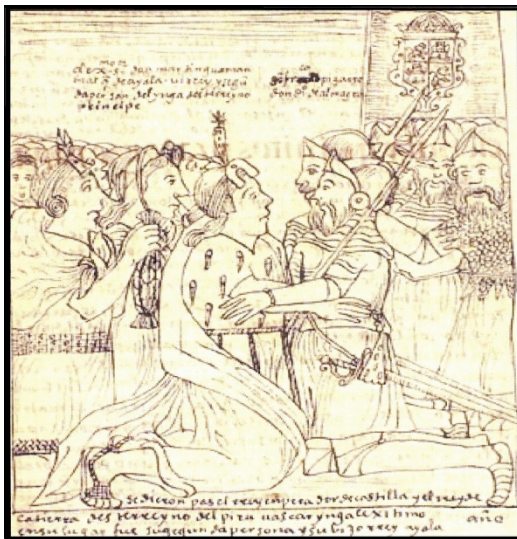 el exmo s. don martin guaman
mal q de ayala - virrey y segū
da persona del ynga deste reyno
principe
franco pizarro
don do de almagro
se dieron paz el rrey enperador de castilla y el rrey de
la tierra deste rreyno del piru uascar ynga lexitimo
en su lugar fue su segunda persona y su bizorrey ayala
año